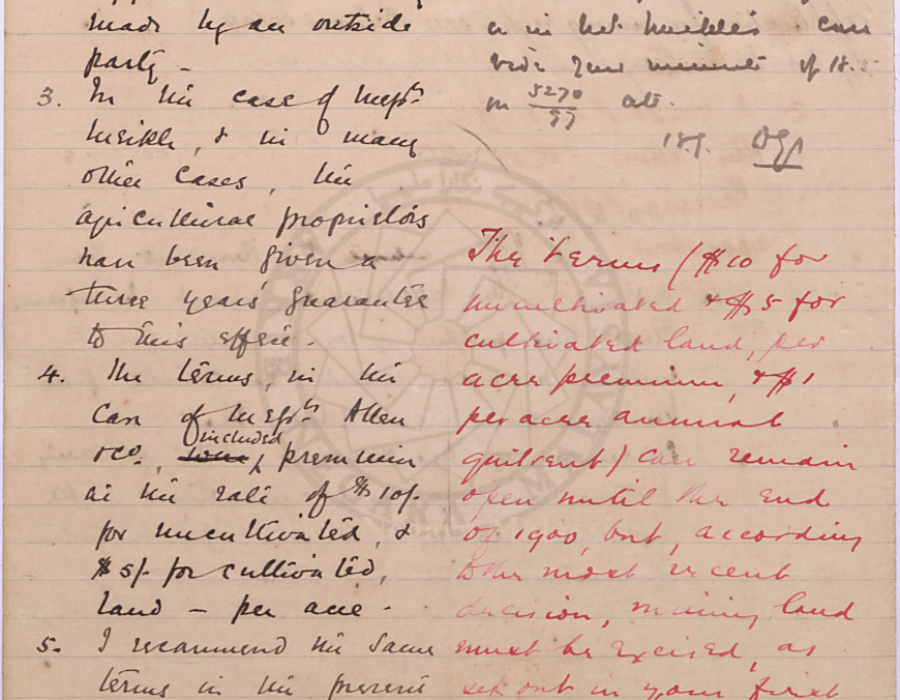 made by an outside
party –
3. In the case of Messrs
Meikle, & in many
other cases, the
agricultural proprietors
have been given a
three years' guarantee
to this effect.
4. The terms, in the
case of Messrs Allen
& Co., included premium
at the rate of $10/-
for uncultivated, &
$5/- for cultivated,
land – per acre.
5. I recommend the same
terms in the present
as in Mr Meikle's case
vide your minute of 18.
in 5270/97 ats.
The terms ($10 for
uncultivated & $5 for
cultivated land, per
acre premium, & $1
per acre annual
quitrent) can remain
open until the end
of 1900, but, according
to the most recent
decision, mining land
must be excised, as
set out in your first